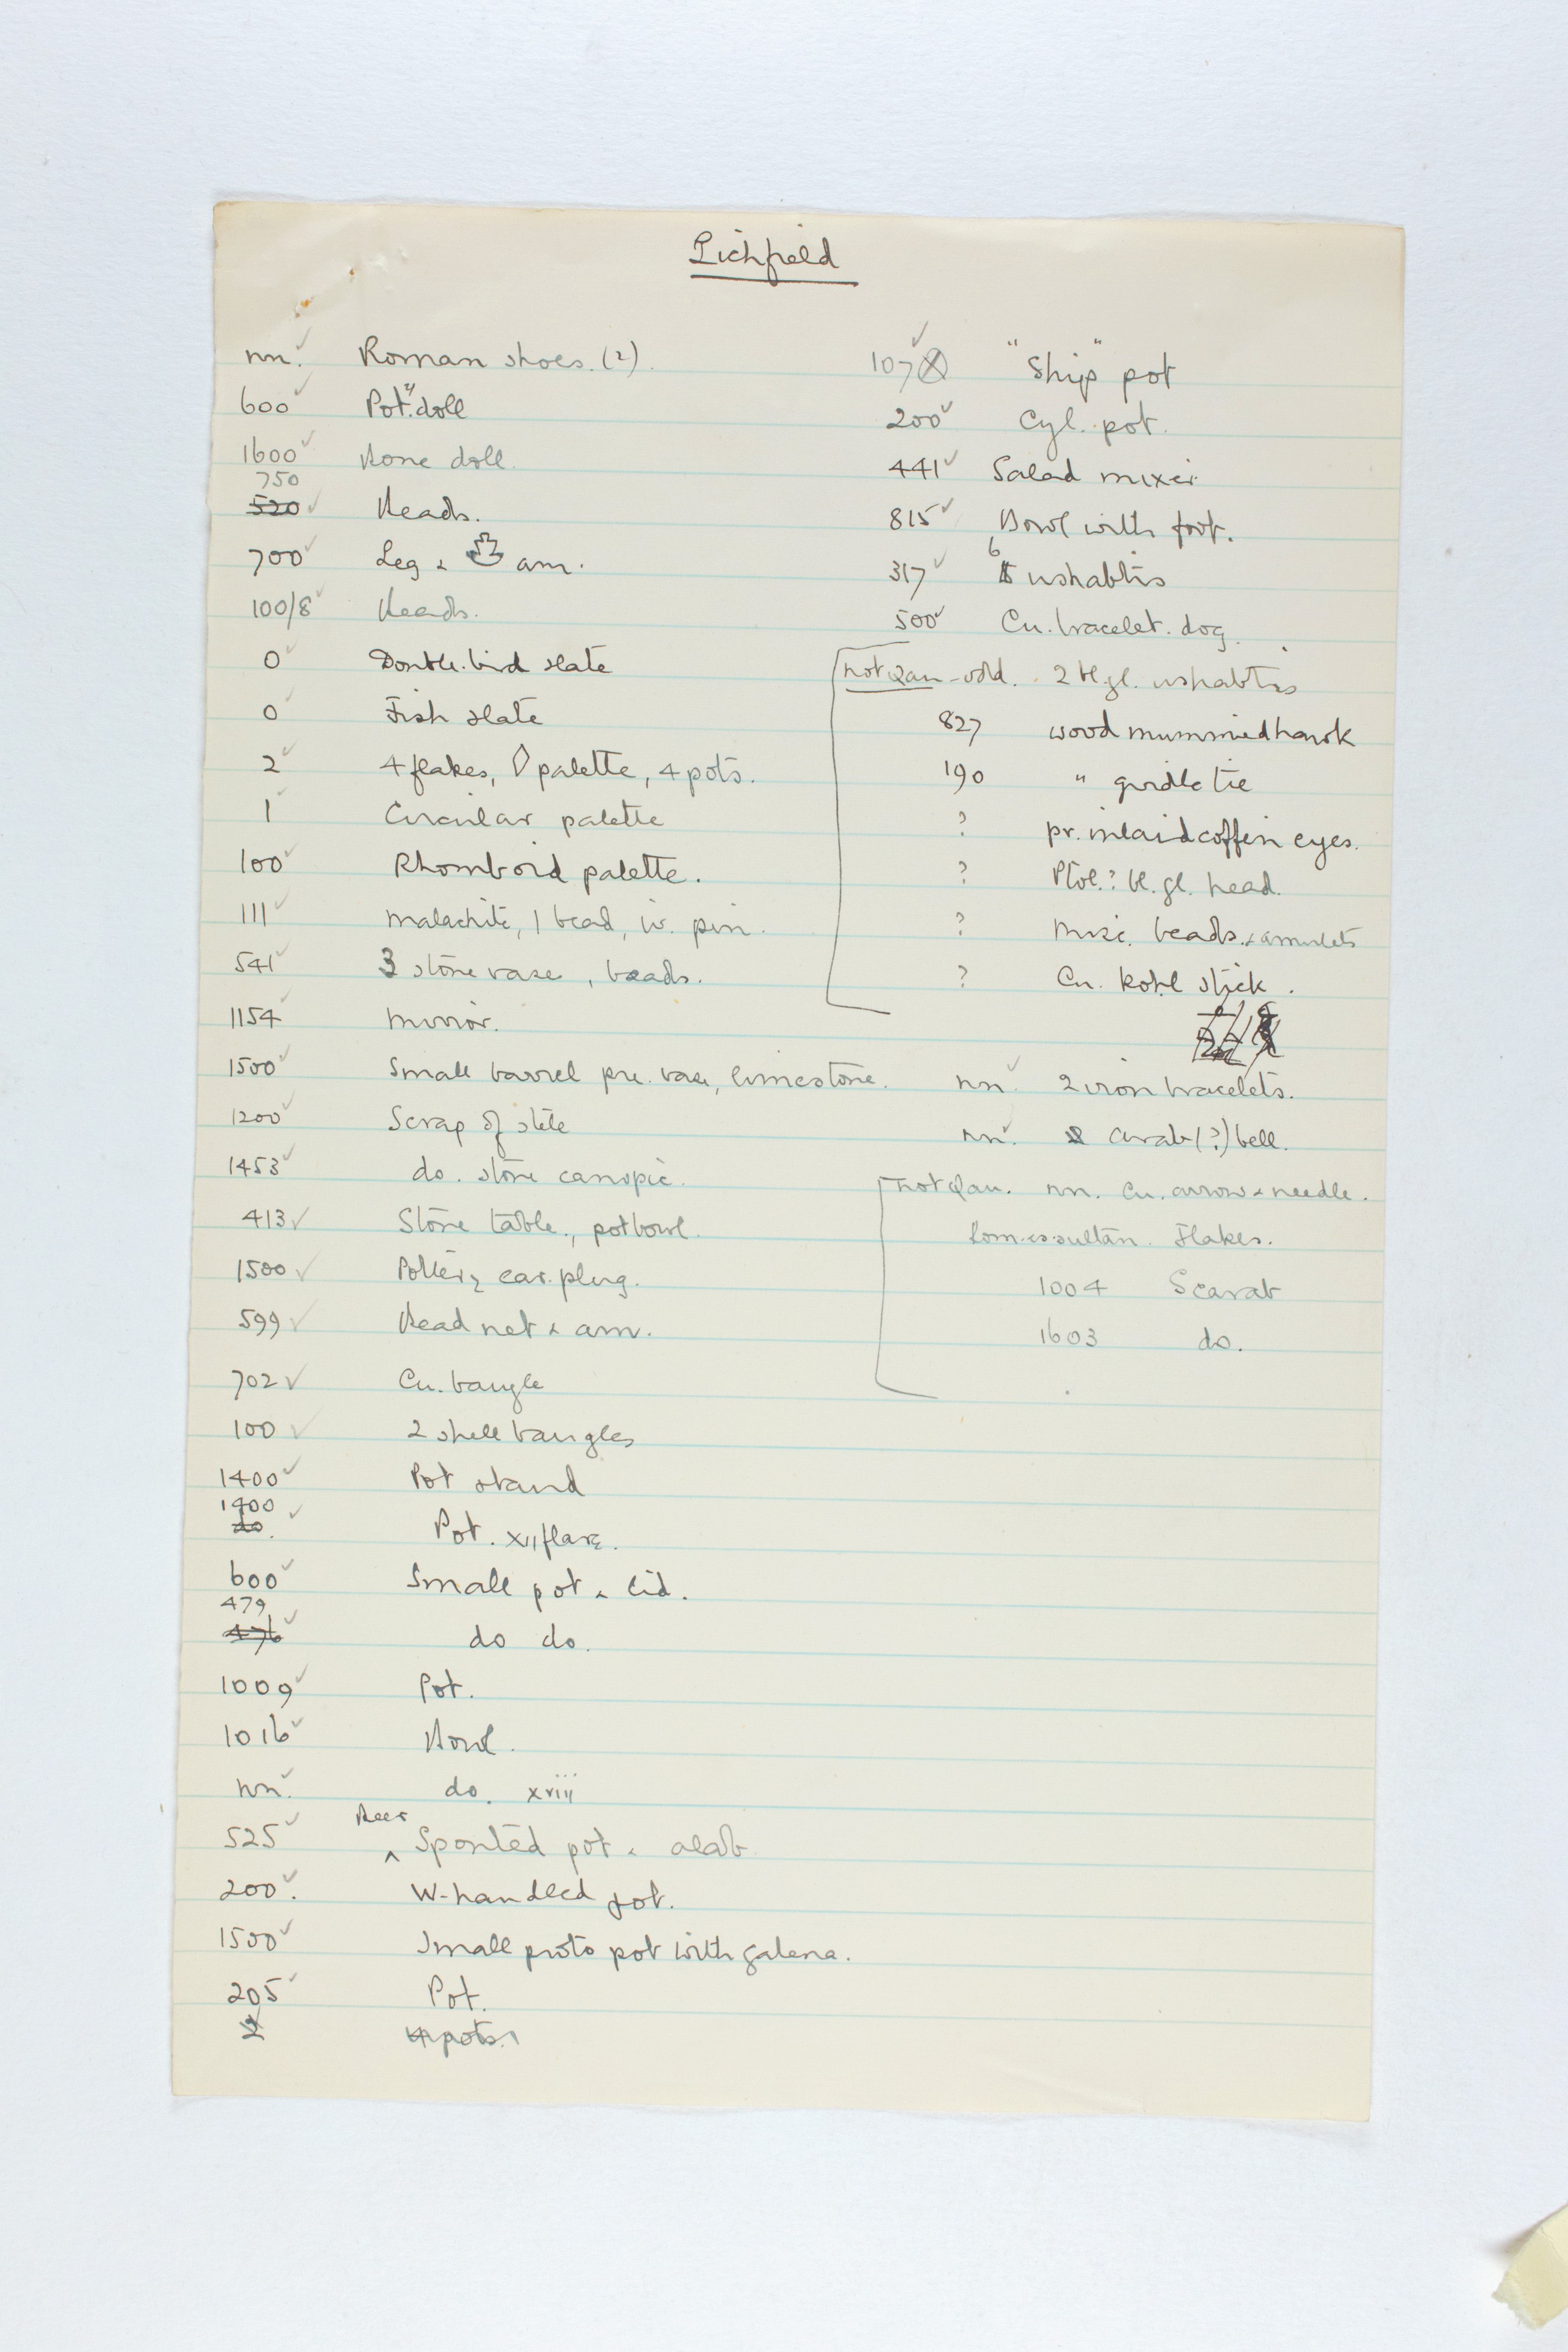 Lichfield
nn. ✓ Roman shoes. (2).
600 ✓ Pot.y doll
1600 ✓ Bone doll.
750
520 ✓ Beads.
700 ✓ Leg & am.
100/8 ✓ Beads.
0 ✓ Double-bird slate
0 ✓ Fish slate
2 ✓ 4 flakes, palette, 4 pots.
1 ✓ Circular palette
100 ✓ Rhomboid palette.
111 ✓ Malachite, 1 bead, iv. pin.
541 ✓ 3 stone vase, beads.
1154 ✓ Mirror.
1500 ✓ Small barrel pre. vase, limestone.
1200 ✓ Scrap of stele
1453 ✓ do. stone canopic.
413 ✓ Stone table, pot bowl.
1500 ✓ Pottery ear-plug.
599 ✓ Bead net & am.
702 ✓ Cu. bangle
100 ✓ 2 shell bangles
1400 ✓ Pot stand
1400
do. ✓ Pot. XII flare.
600 ✓ Small pot & lid.
479
476 ✓ do do.
1009 ✓ Pot.
1016 ✓ Bowl.
nn. ✓ do. xviii
Beer
525 ✓ ^ Spouted pot & alab
200 ✓. W-handled pot.
1500 ✓ Small proto pot with galena.
205 ✓ Pot.
2 4 pots.
107 ✓ "Ship" pot
200 ✓ Cyl. pot.
441 ✓ Salad mixer
815 ✓ Bowl with foot.
317 ✓ 6 ushabtis
500 ✓ Cu. bracelet. dog.
not Qau - old. 2 bl. gl. ushabtis
827 wood mummied hawk
190 " girdle tie
? pr. inlaid coffin eyes.
? Ptol.? bl. gl. head.
? Misc. beads & amulets
? Cu. kohl stick.
nn. ✓ 2 iron bracelets.
nn. ✓ arab (?) bell.
not Qau. nn. Cu. arrow & needle.
Kom-es-sultan. Flakes.
1004 Scarab
1603 do.